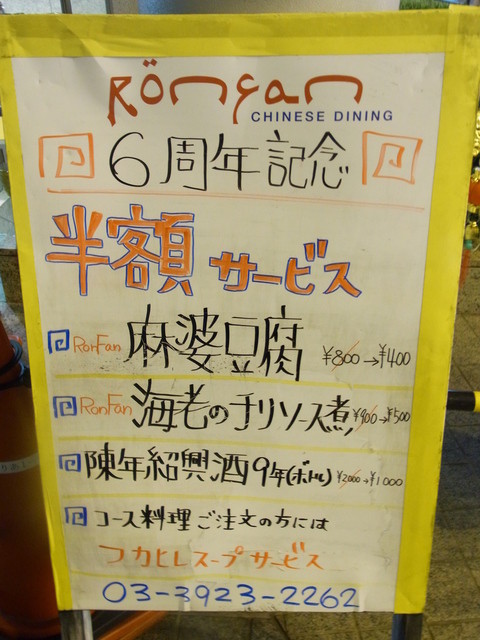 Rönfan
CHINESE DINING
6周年記念
半額サービス
RonFan 麻婆豆腐 ¥800→¥400
RonFan 海老のチリソース煮 ¥900→¥500
陳年紹興酒9年(ボトル) ¥2000→¥1000
コース料理ご注文の方には
フカヒレスープサービス
03-3923-2262